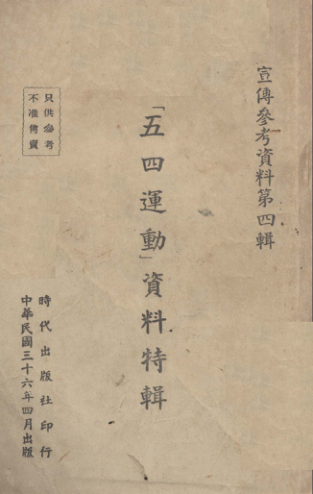 宣傳參考資料第四輯
「五四運動」資料特輯
只供參考
不准傳賣
時代出版社印行
中華民國三十六年四月出版